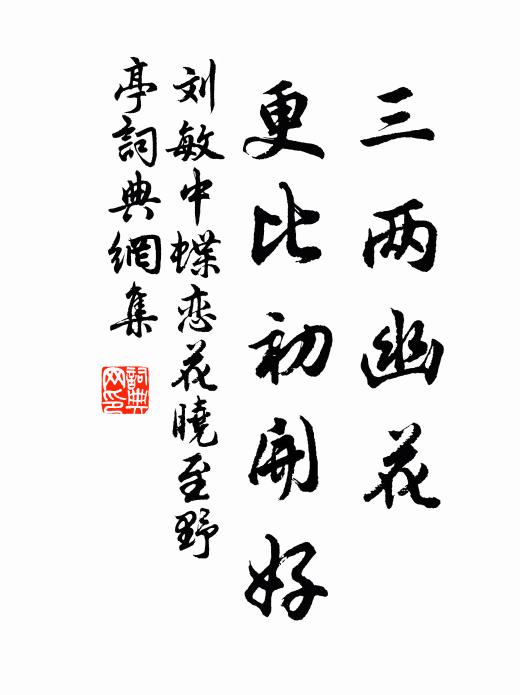 三两幽花
更比初開好
刘敏中蝶恋花曉至野
亭詞典網集
詞典
网印